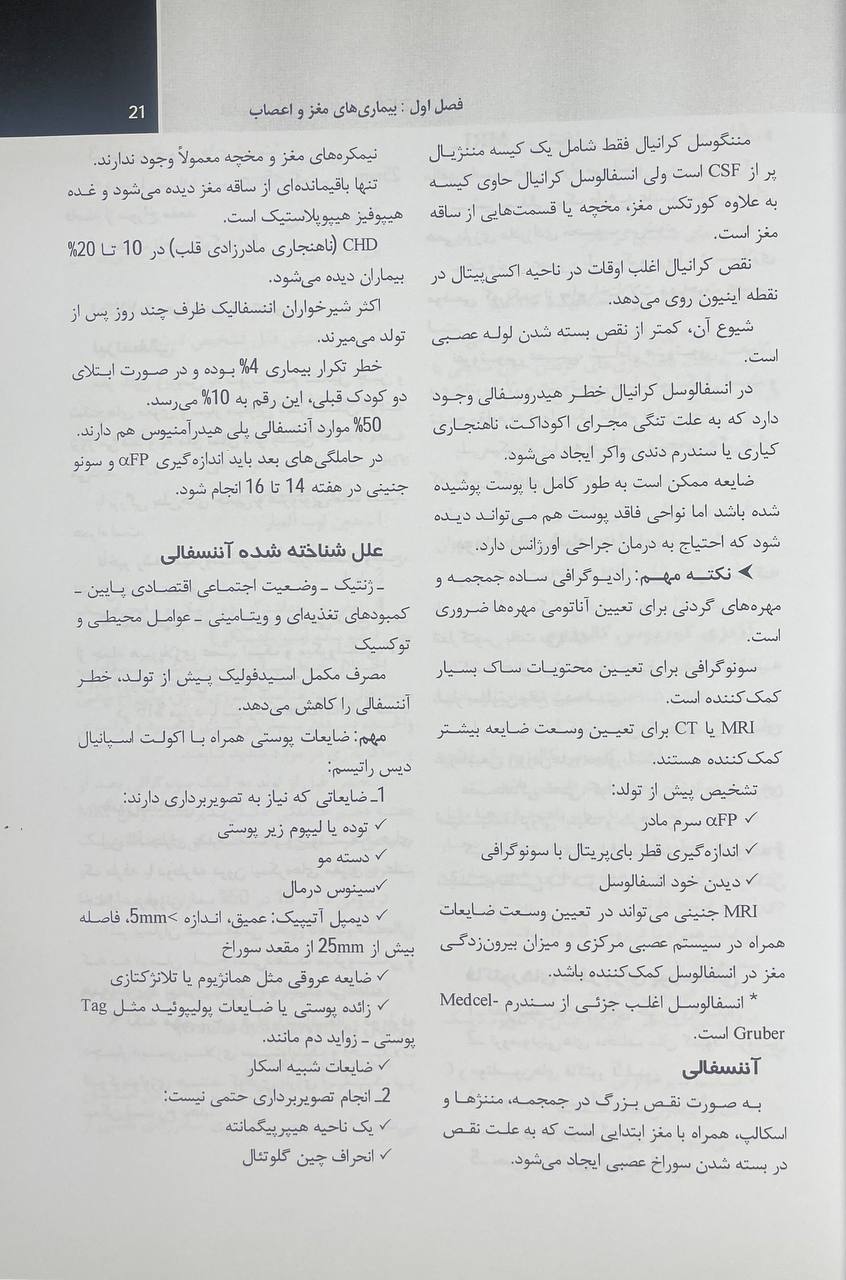 فصل اول : بیماری‌های مغز و اعصاب
21
مننگوسل کرانیال فقط شامل یک کیسه مننژیال
پر از CSF است ولی انسفالوسل کرانیال حاوی کیسه
به علاوه کورتکس مغز، مخچه یا قسمت‌هایی از ساقه
مغز است.
نقص کرانیال اغلب اوقات در ناحیه اکسی‌پیتال در
نقطه اینیون روی می‌دهد.
شیوع آن، کمتر از نقص بسته شدن لوله عصبی
است.
در انسفالوسل کرانیال خطر هیدروسفالی وجود
دارد که به علت تنگی مجرای اکوداکت، ناهنجاری
کیاری یا سندرم دندی واکر ایجاد می‌شود.
ضایعه ممکن است به طور کامل با پوست پوشیده
شده باشد اما نواحی فاقد پوست هم می‌تواند دیده
شود که احتیاج به درمان جراحی اورژانس دارد.
➤ نکته مهم: رادیوگرافی ساده جمجمه و
مهره‌های گردنی برای تعیین آناتومی مهره‌ها ضروری
است.
سونوگرافی برای تعیین محتویات ساک بسیار
کمک‌کننده است.
MRI یا CT برای تعیین وسعت ضایعه بیشتر
کمک‌کننده هستند.
تشخیص پیش از تولد:
✓ αFP سرم مادر
✓ اندازه‌گیری قطر بای‌پریتال با سونوگرافی
✓ دیدن خود انسفالوسل
MRI جنینی می‌تواند در تعیین وسعت ضایعات
همراه در سیستم عصبی مرکزی و میزان بیرون‌زدگی
مغز در انسفالوسل کمک‌کننده باشد.
* انسفالوسل اغلب جزئی از سندرم Medcel-
Gruber است.
آننسفالی
به صورت نقص بزرگ در جمجمه، مننژها و
اسکالپ، همراه با مغز ابتدایی است که به علت نقص
در بسته شدن سوراخ عصبی ایجاد می‌شود.
نیمکره‌های مغز و مخچه معمولاً وجود ندارند.
تنها باقیمانده‌ای از ساقه مغز دیده می‌شود و غده
هیپوفیز هیپوپلاستیک است.
CHD (ناهنجاری مادرزادی قلب) در 10 تا 20%
بیماران دیده می‌شود.
اکثر شیرخواران اننسفالیک ظرف چند روز پس از
تولد می‌میرند.
خطر تکرار بیماری 4% بوده و در صورت ابتلای
دو کودک قبلی، این رقم به 10% می‌رسد.
50% موارد آننسفالی پلی هیدرآمنیوس هم دارند.
در حاملگی‌های بعد باید اندازه‌گیری αFP و سونو
جنینی در هفته 14 تا 16 انجام شود.
علل شناخته شده آننسفالی
ـ ژنتیک ـ وضعیت اجتماعی اقتصادی پایین ـ
کمبودهای تغذیه‌ای و ویتامینی ـ عوامل محیطی و
توکسیک
مصرف مکمل اسیدفولیک پیش از تولد، خطر
آننسفالی را کاهش می‌دهد.
مهم: ضایعات پوستی همراه با اکولت اسپانیال
دیس راتیسم:
1ـ ضایعاتی که نیاز به تصویربرداری دارند:
✓ توده یا لیپوم زیر پوستی
✓ دسته مو
✓سینوس درمال
✓ دیمپل آتیپیک: عمیق، اندازه >5mm، فاصله
بیش از 25mm از مقعد سوراخ
✓ ضایعه عروقی مثل همانژیوم یا تلانژکتازی
✓ زائده پوستی یا ضایعات پولیپوئید مثل Tag
پوستی ـ زواید دم مانند.
✓ ضایعات شبیه اسکار
2ـ انجام تصویربرداری حتمی نیست:
✓ یک ناحیه هیپرپیگمانته
✓ انحراف چین گلوتئال